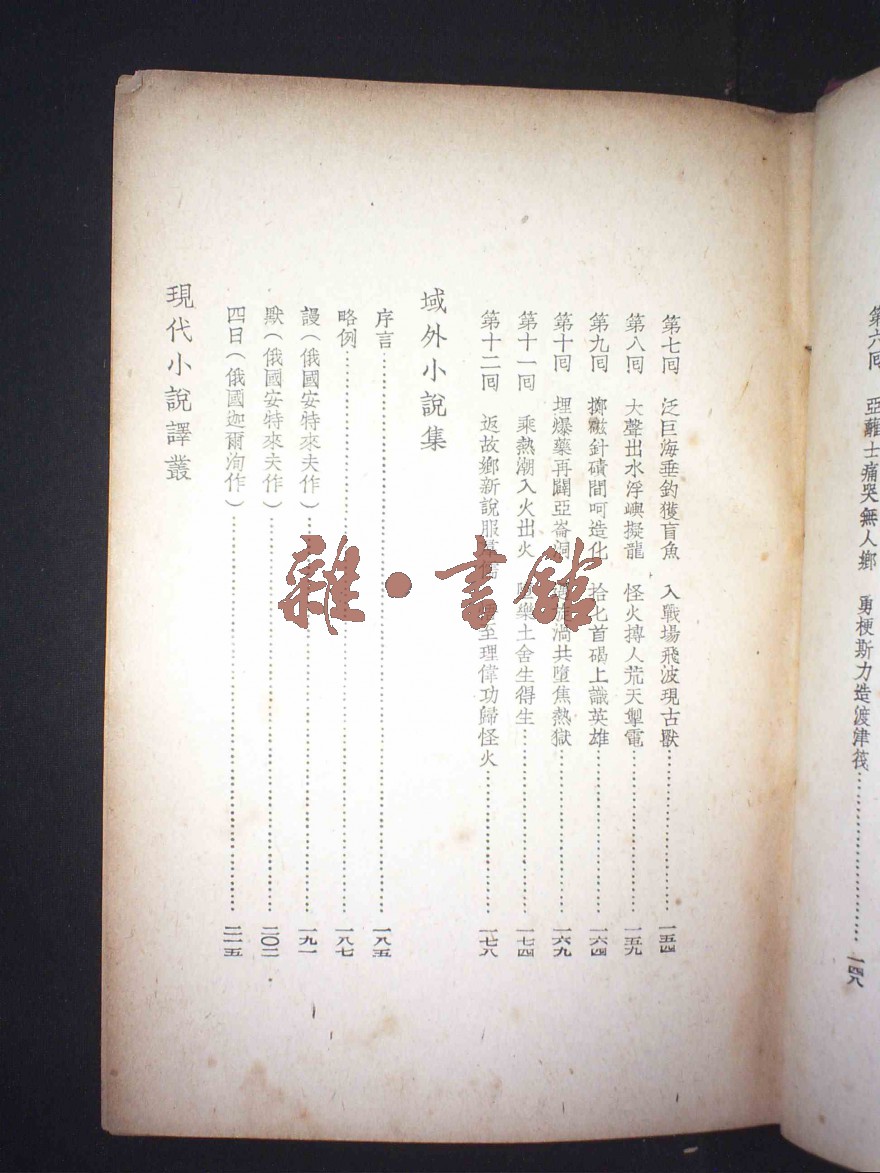 第六囘　亞蘺士痛哭無人鄉　勇梗斯力造渡津筏……一四八
第七囘　泛巨海垂釣獲盲魚　入戰場飛波現古獸……一五四
第八囘　大聲出水浮嶼擬龍　怪火搏人荒天掣電……一五九
第九囘　擲磁針碛間呵造化　拾匕首碣上識英雄……一六四
第十囘　埋爆藥再闢亞崙洞　渦共墮焦熱獄……一六九
第十一囘　乘熱潮入火出火　樂土舍生得生……一七四
第十二囘　返故鄉新說服　至理偉功歸怪火……一七八
域外小說集
序言……一八五
略例……一八七
謾(俄國安特來夫作)……一九一
默(俄國安特來夫作)……二〇二
四日(俄國迦爾洵作)……二一五
現代小說譯叢
雜·書館